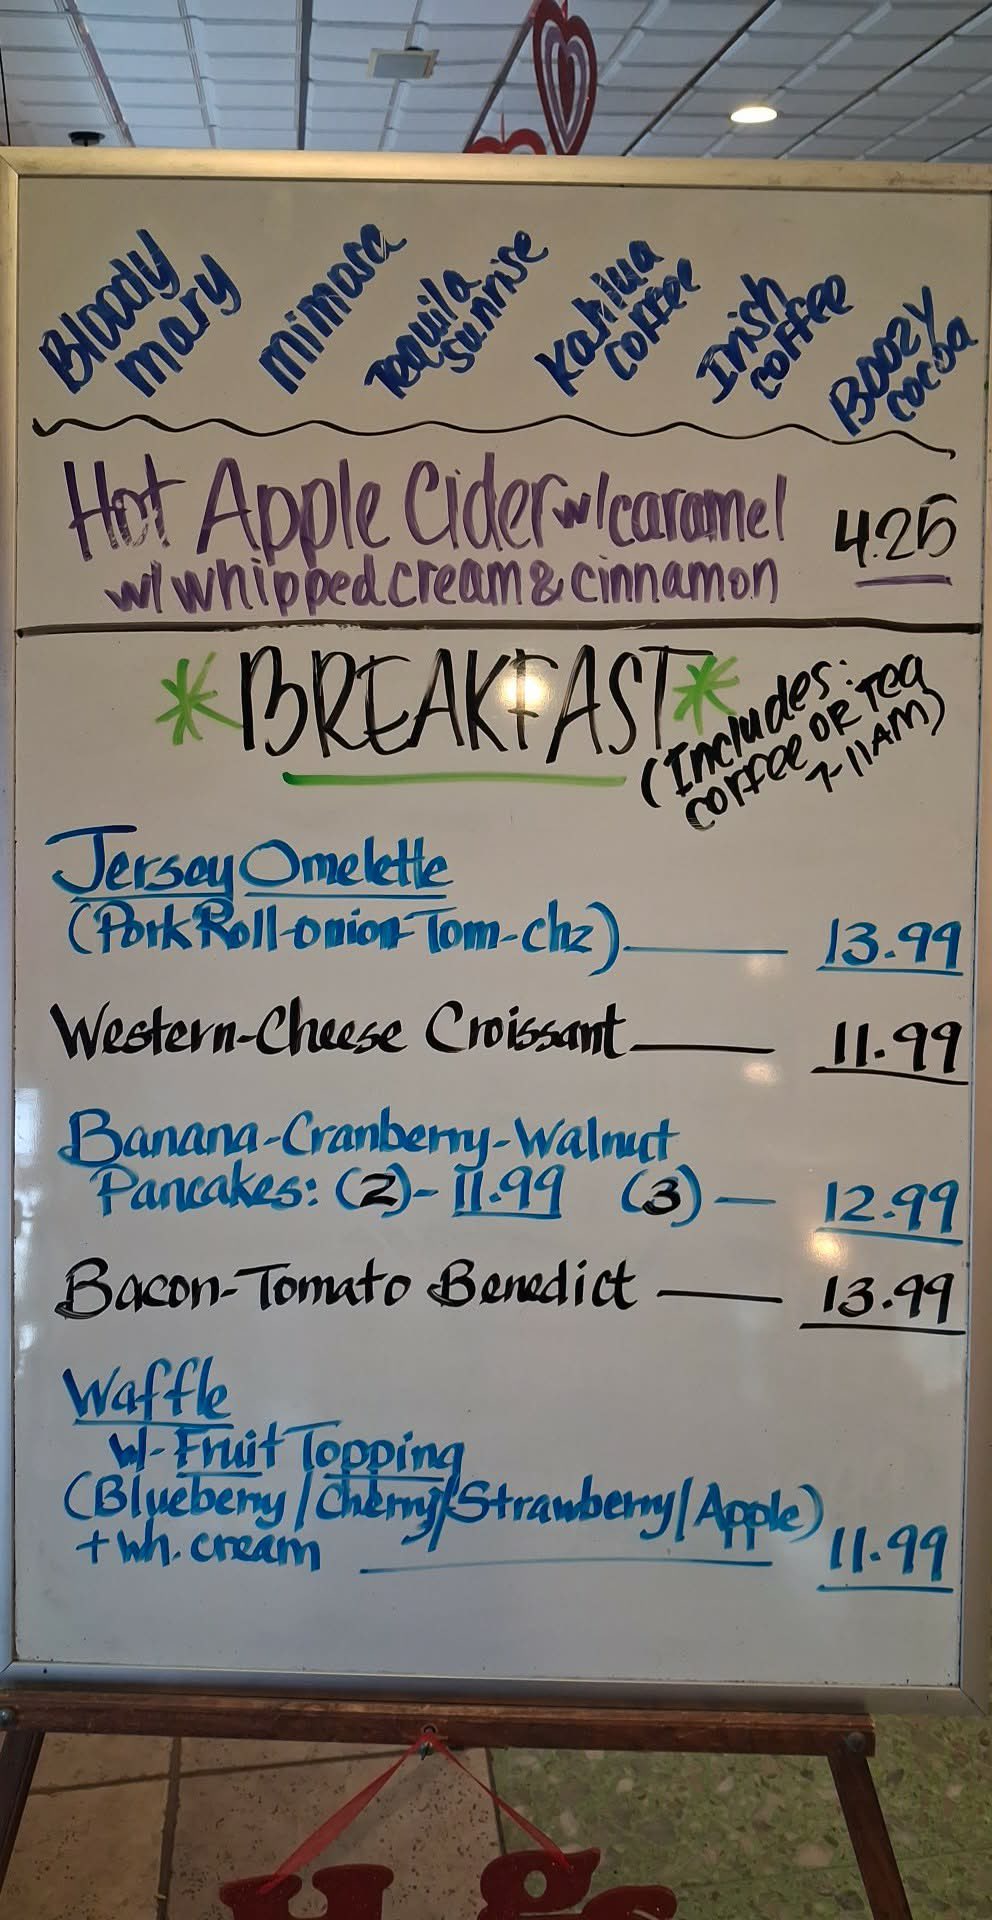 Bloody
mary
mimosa
Tequila
sunrise
Kahlua
coffee
Irish
coffee
Boozy
cocoa
Hot Apple Cider w/caramel 4.25
w/ whipped cream & cinnamon
*BREAKFAST*
(Includes:
coffee OR Tea
7-11AM)
Jersey Omelette
(Pork Roll-onion-Tom-chz) 13.99
Western-Cheese Croissant 11.99
Banana-Cranberry-Walnut
Pancakes: (2)- 11.99 (3) — 12.99
Bacon-Tomato Benedict — 13.99
Waffle
w- Fruit Topping
(Blueberry/Cherry/Strawberry/Apple)
+ wh. cream 11.99